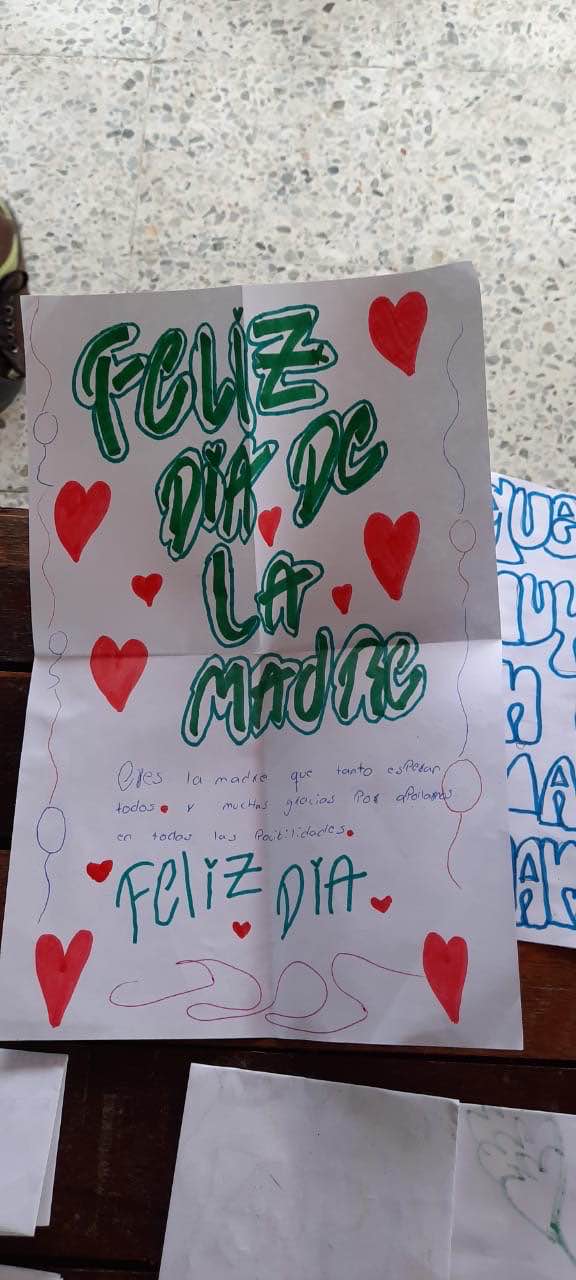 FELIZ
DIA DE
LA
MADRE
Eres la madre que tanto esperan
todos. y muchas gracias Por apoilarnos
en todas las Pocitilidades.
FELIZ DIA
QUE